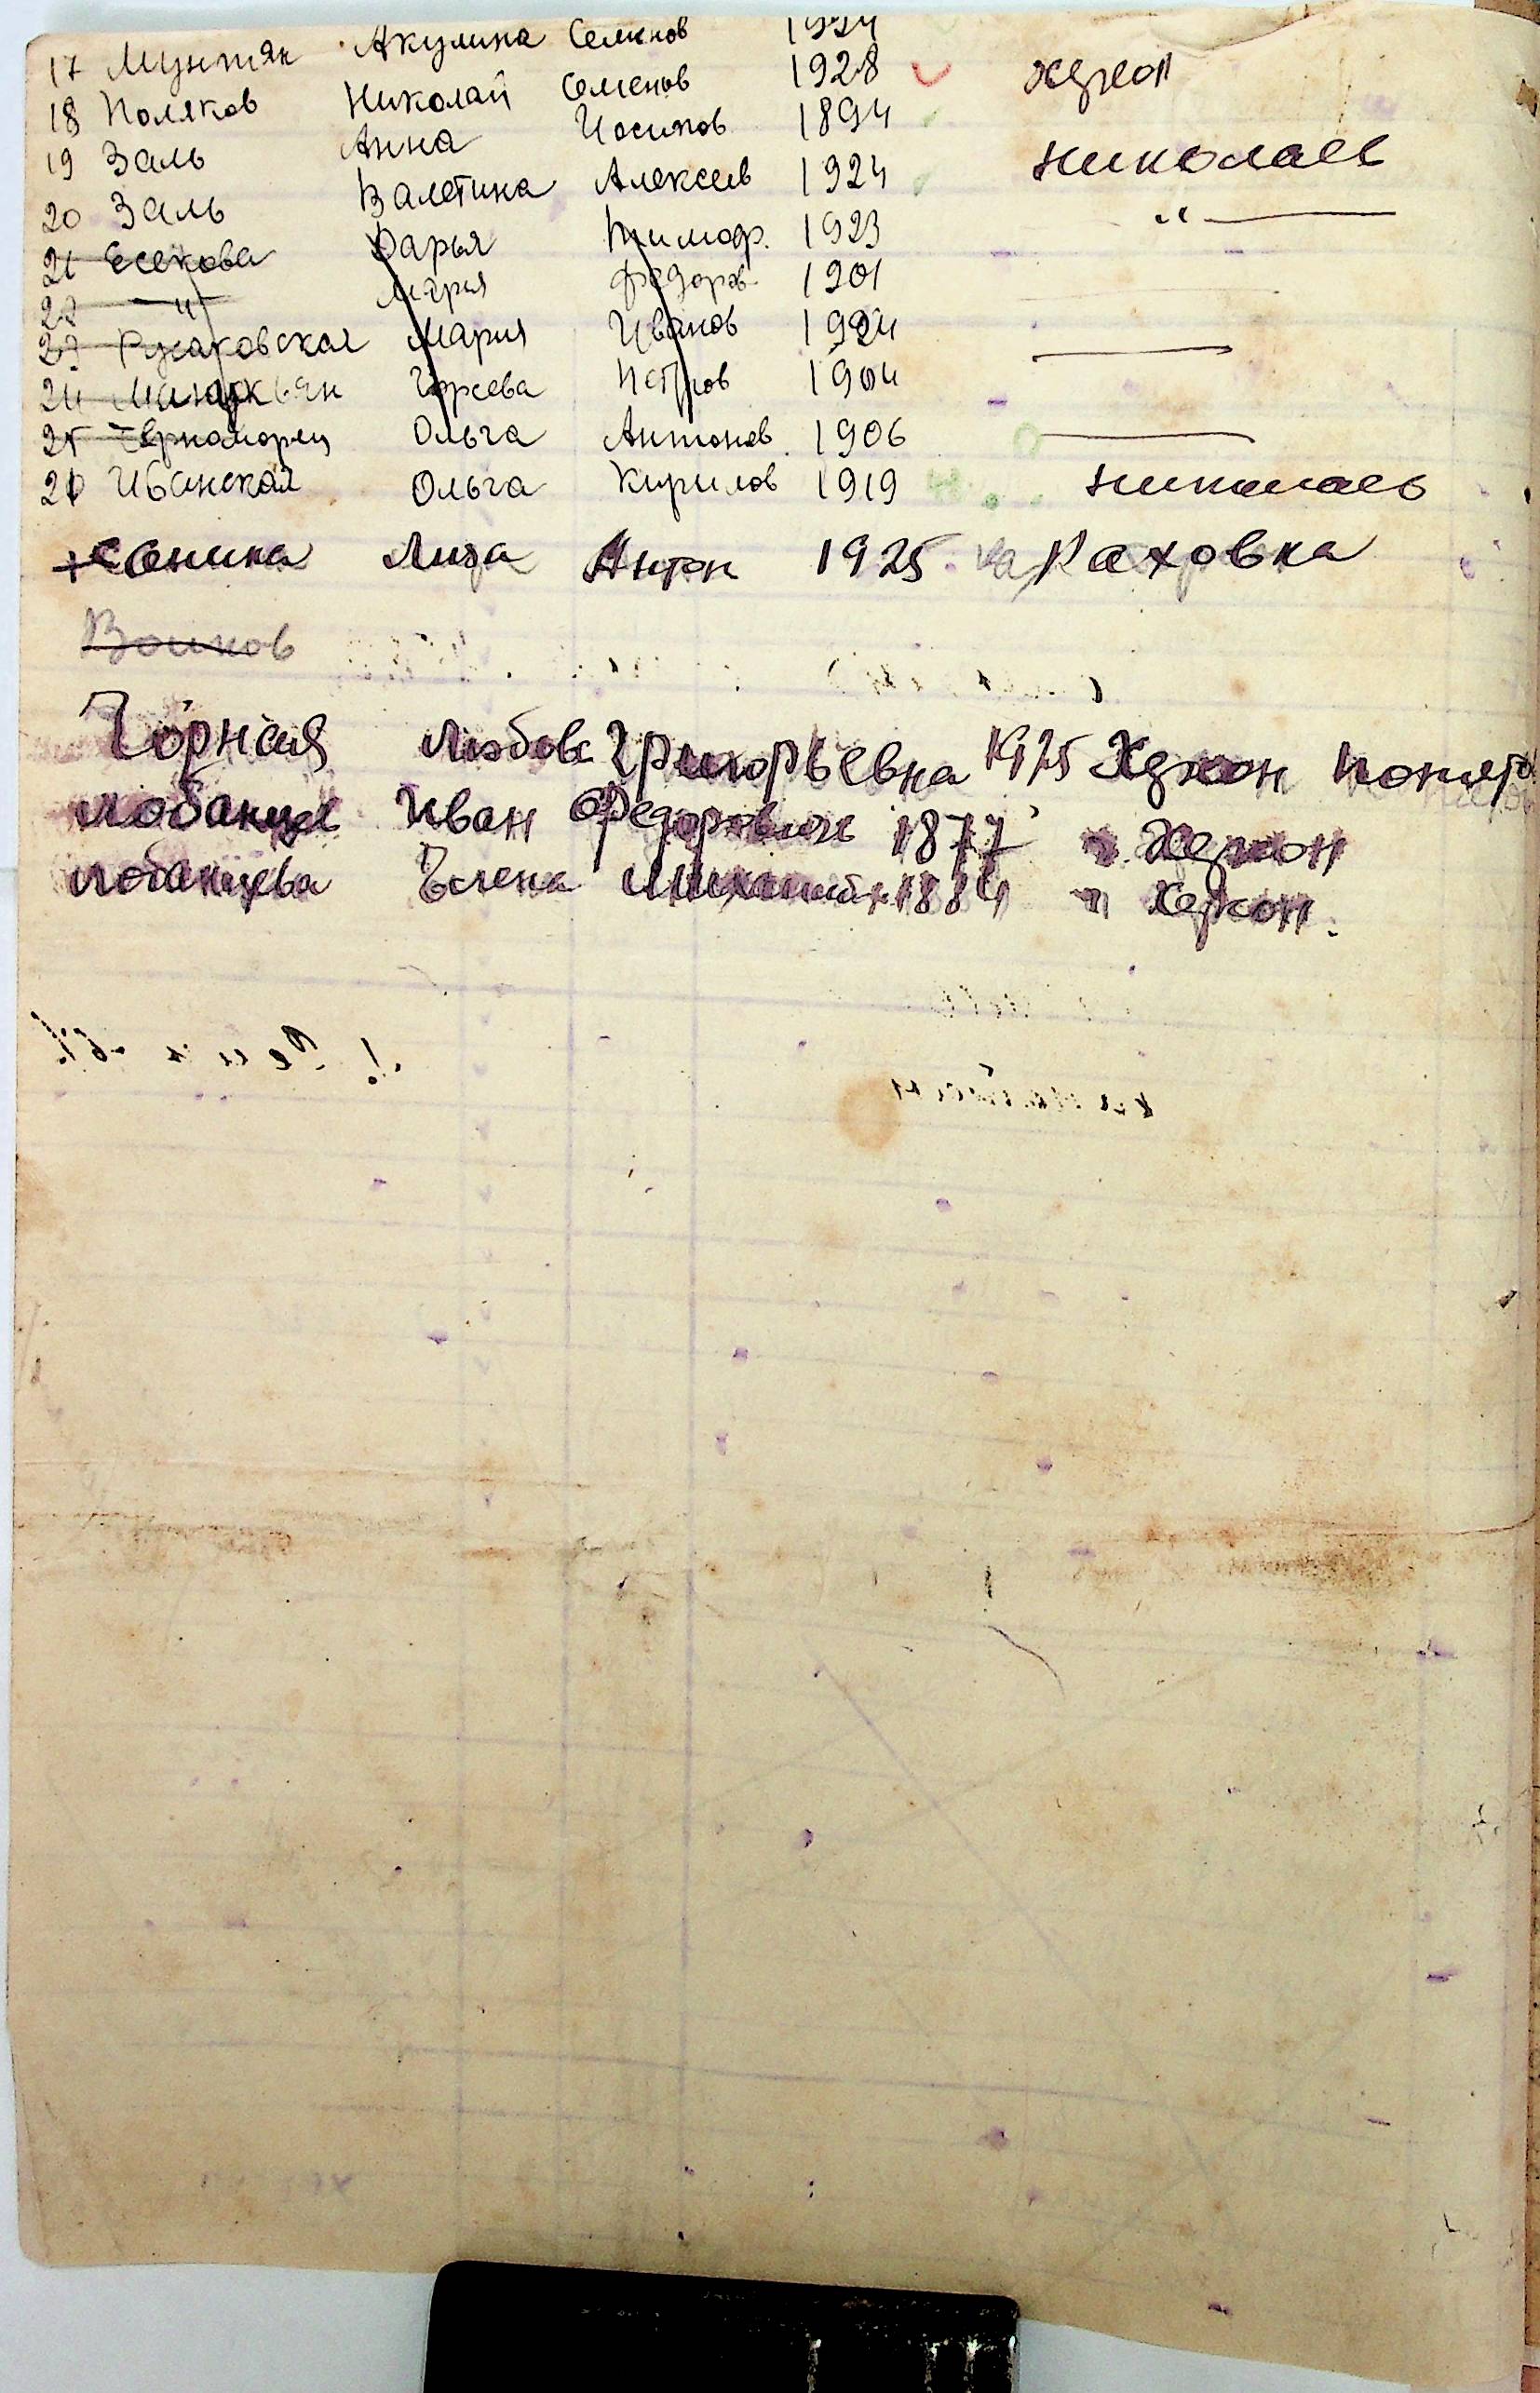 17 Мунтян Акулина Семенов 1924
18 Поляков Николай Семенов 1928 Херсон
19 Заль Анна Иосипов 1894 Николаев
20 Заль Валетина Алексеев 1924 "
21 Есекова Дарья Тимоф. 1923
22 " Мария Федоров 1901
23 Мария Иванов 1924
24 Петров 1904
25 Черноморец Ольга Антонов 1906
26 Иванская Ольга Кирилов 1919 Николаев
Сонина Лиза Антон 1925 Каховка
Воинов
Чорная Любовь Григорьевна 1925 Херсон
Лобанцев Иван Федорович 1877 " Херсон
Лобанцева Елена 1884 " Херсон.